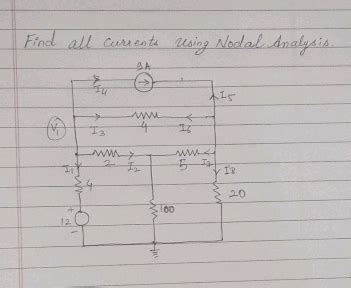 Find all currents using Nodal Analysis.
3A
I4
I5
V1
I3
4
I6
I1
2
I2
5
I7
I8
4
100
20
12
+
-